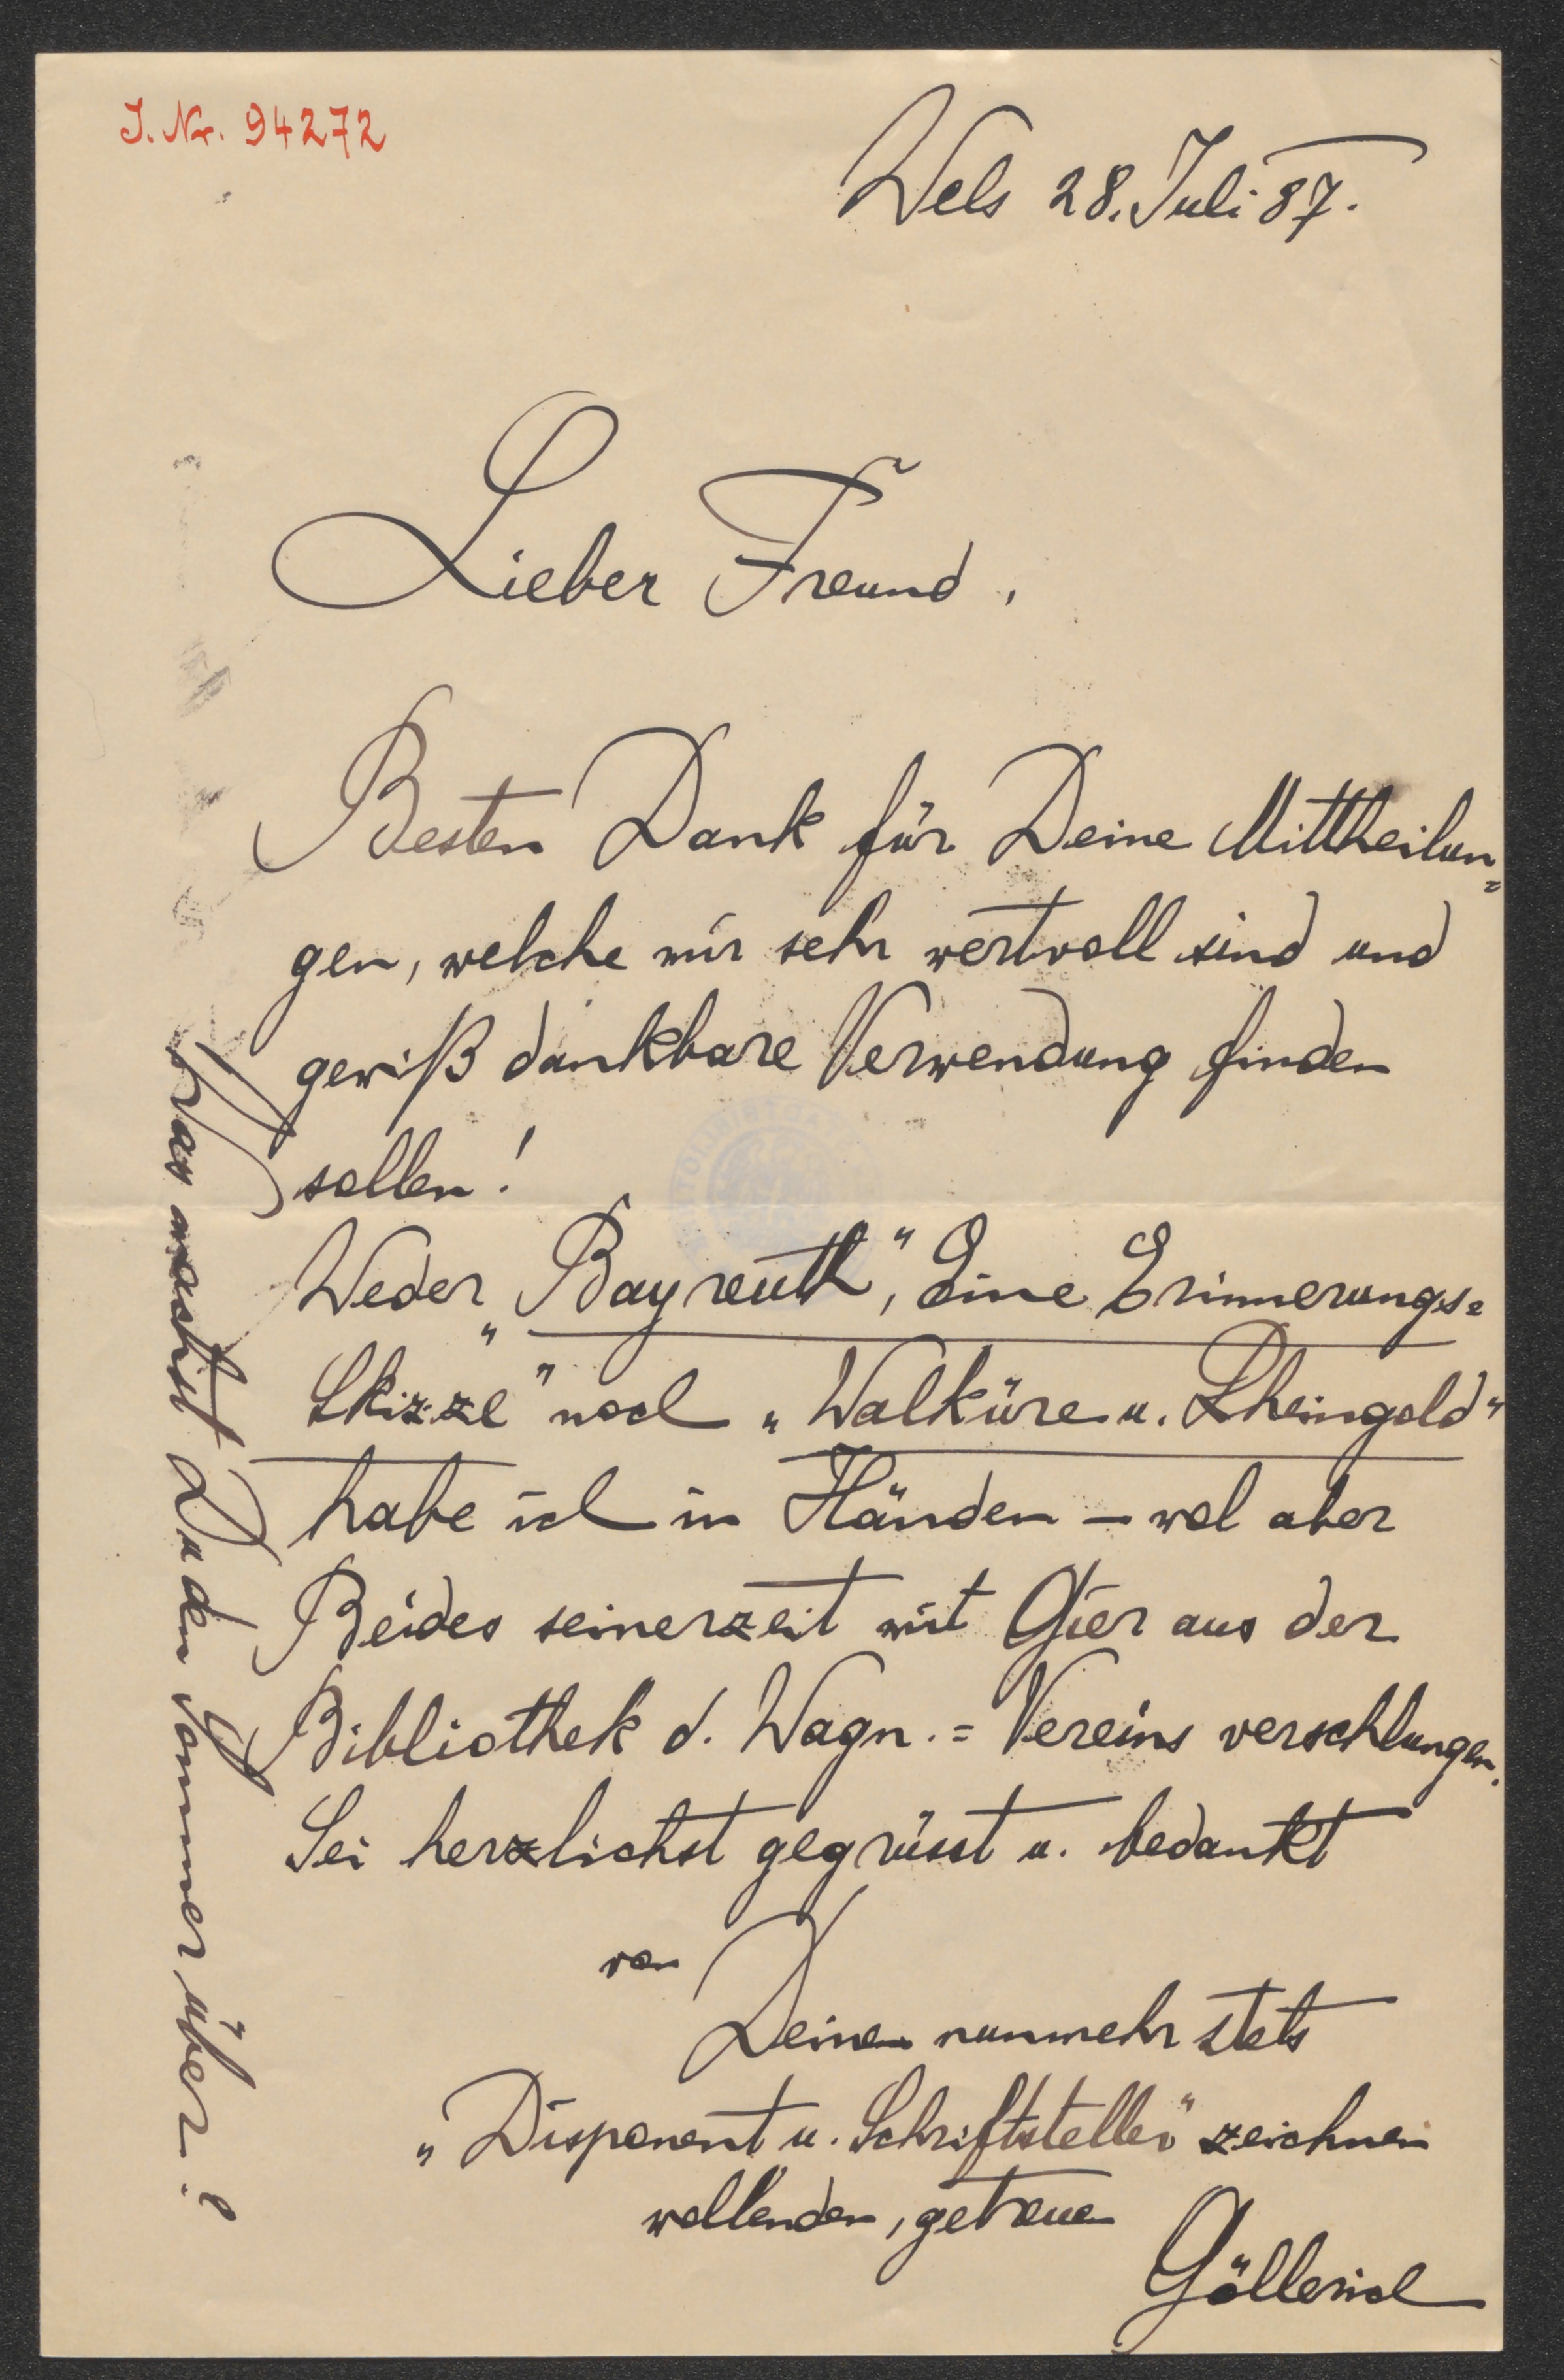 J. Nr. 94272
Wels 28. Juli 87.
Lieber Freund,
Besten Dank für Deine Mittheilun=
gen, welche mir sehr wertvoll sind und
gewiß dankbare Verwendung finden
sollen!
Weder „Bayreuth", „Eine Erinnerungs=
Skizze" noch „Walküre u. Rheingold"
habe ich in Händen – wol aber
Beides seinerzeit mit Gier aus der
Bibliothek d. Wagn.=Vereins verschlungen.
Sei herzlichst gegrüsst u. bedankt
von
Deinem nunmehr stets
„Disponent u. Schriftsteller" zeichnen
wollenden, getreuen
Göllerich
Was machst Du den Sommer über?